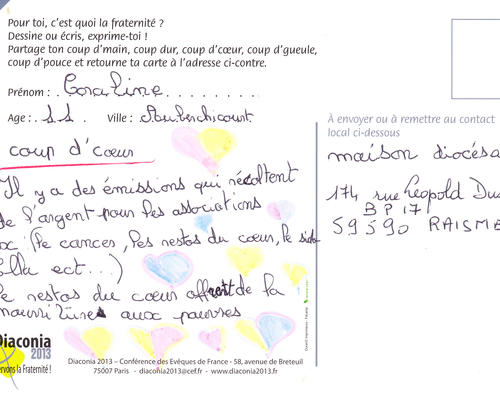 Pour toi, c'est quoi la fraternité ?
Dessine ou écris, exprime-toi !
Partage ton coup d'main, coup dur, coup d'cœur, coup d'gueule,
coup d'pouce et retourne ta carte à l'adresse ci-contre.
Prénom : Coraline
Age : 11 Ville : Auberchicourt
coup d'cœur
Il y a des émissions qui récoltent
de l'argent pour les associations
(le cancer, les restos du cœur, le
ect...)
le restos du cœur offrent de la
nourriture aux pauvres
À envoyer ou à remettre au contact
local ci-dessous
maison diocésa
174 rue Léopold Du
BP 17
59590 RAISME
Diaconia
2013
ervons la Fraternité !
Diaconia 2013 – Conférence des Evêques de France - 58, avenue de Breteuil
75007 Paris - diaconia2013@cef.fr - www.diaconia2013.fr